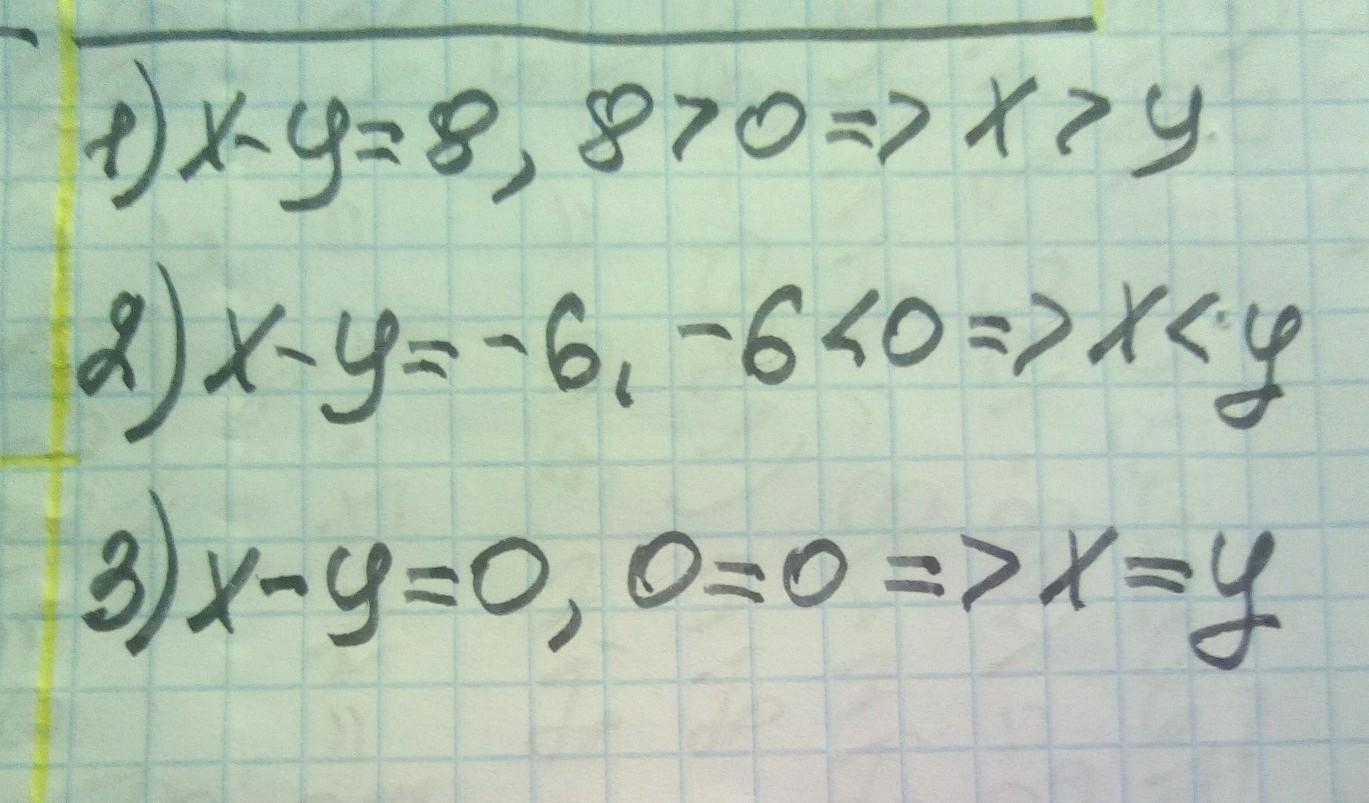 1) x-y=8, 8>0=>x>y
2) x-y=-6, -6<0=>x<y
3) x-y=0, 0=0=>x=y